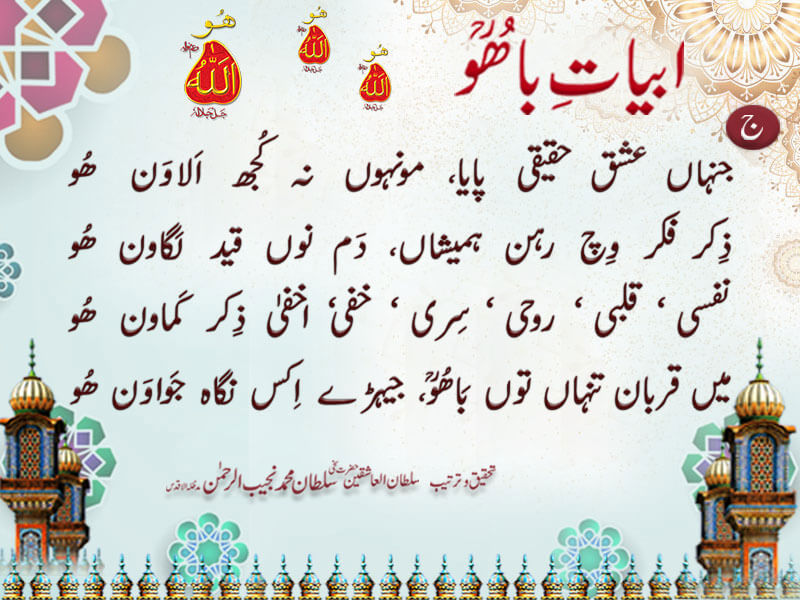 ھُو
اللہ
جل جلالہ
ھُو
اللہ
جل جلالہ
ھُو
اللہ
جل جلالہ
ابیاتِ باھُوؒ
ج
جنہاں عشق حقیقی پایا، مونہوں نہ کُجھ اَلاوَن ھُو
ذِکر فکر وِچ رہن ہمیشاں، دَم نوں قید لگاون ھُو
نفسی ، قلبی ، روحی ، سِری ، خفی ، اخفیٰ ذِکر کماون ھُو
میں قربان تنہاں توں بَاھُوؒ، جیہڑے اِکس نگاہ جَواوَن ھُو
تحقیق و ترتیب سلطان العاشقین حضرت سخی سلطان محمد نجیب الرحمٰن مدظلہ الاقدس